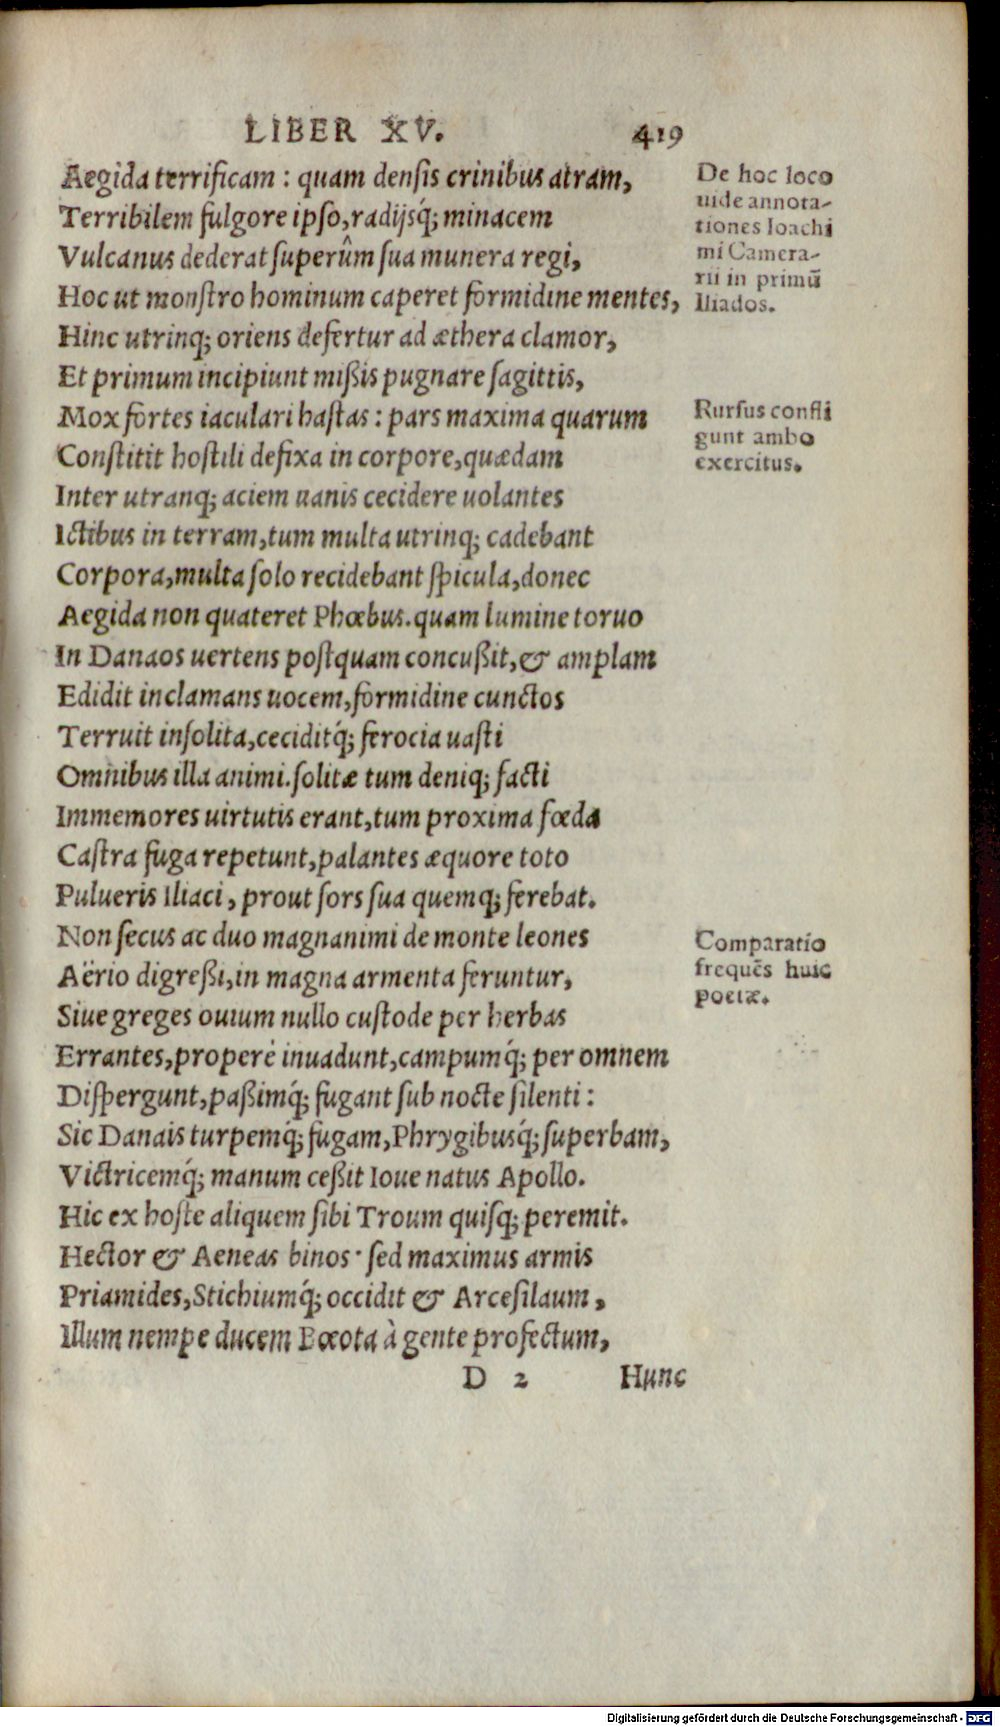 LIBER XV. 419
Aegida terrificam : quam densis crinibus atram,
Terribilem fulgore ipso, radijsq́; minacem
Vulcanus dederat superûm sua munera regi,
Hoc ut monstro hominum caperet formidine mentes,
Hinc utrinq; oriens defertur ad æthera clamor,
Et primum incipiunt mißis pugnare sagittis,
Mox fortes iaculari hastas : pars maxima quarum
Constitit hostili defixa in corpore, quædam
Inter utranq; aciem uanis cecidere uolantes
Ictibus in terram, tum multa utrinq; cadebant
Corpora, multa solo recidebant spicula, donec
Aegida non quateret Phœbus. quam lumine toruo
In Danaos uertens postquam concußit, & amplam
Edidit inclamans uocem, formidine cunctos
Terruit insolita, ceciditq́; ferocia uasti
Omnibus illa animi. solitæ tum deniq; facti
Immemores uirtutis erant, tum proxima fœda
Castra fuga repetunt, palantes æquore toto
Pulueris Iliaci, prout sors sua quemq; ferebat.
Non secus ac duo magnanimi de monte leones
Aërio digreßi, in magna armenta feruntur,
Siue greges ouium nullo custode per herbas
Errantes, properè inuadunt, campumq́; per omnem
Dispergunt, paßimq́; fugant sub nocte silenti :
Sic Danais turpemq́; fugam, Phrygibusq́; superbam,
Victricemq́; manum ceßit Ioue natus Apollo.
Hic ex hoste aliquem sibi Troum quisq; peremit.
Hector & Aeneas binos· sed maximus armis
Priamides, Stichiumq́; occidit & Arcesilaum,
Illum nempe ducem Bœota à gente profectum,
D 2 Hunc
De hoc loco
uide annota-
tiones Ioachi
mi Camera-
rii in primũ
Iliados.
Rursus confli
gunt ambo
exercitus.
Comparatio
frequẽs huic
poetæ.
Digitalisierung gefördert durch die Deutsche Forschungsgemeinschaft - DFG